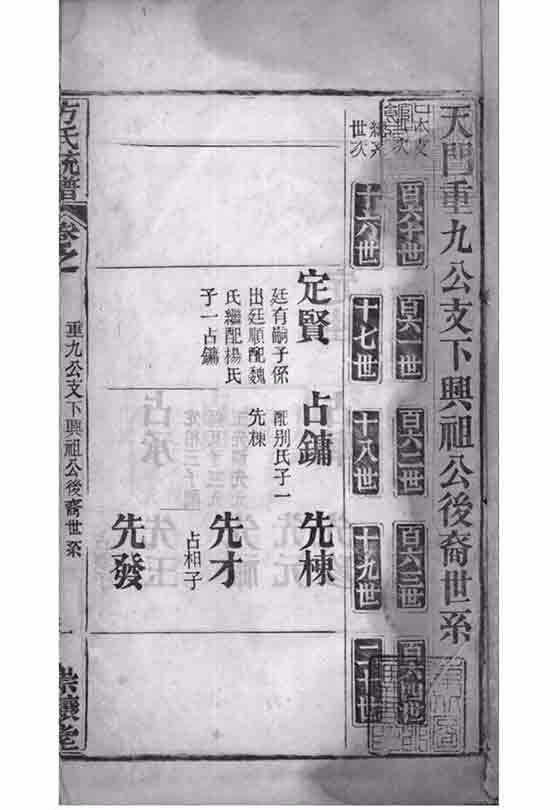 天門重九公支下興祖公後裔世系
百六十世
百六一世
百六二世
百六三世
世次
十六世
十七世
十八世
十九世
二十世
定賢
廷有嗣子係
出廷順配魏
氏繼配楊氏
子一占鏞
占鏞
配別氏子一
先棟
先棟
先才
占和子
先發
方氏統譜
卷之
重九公支下興祖公後裔世系